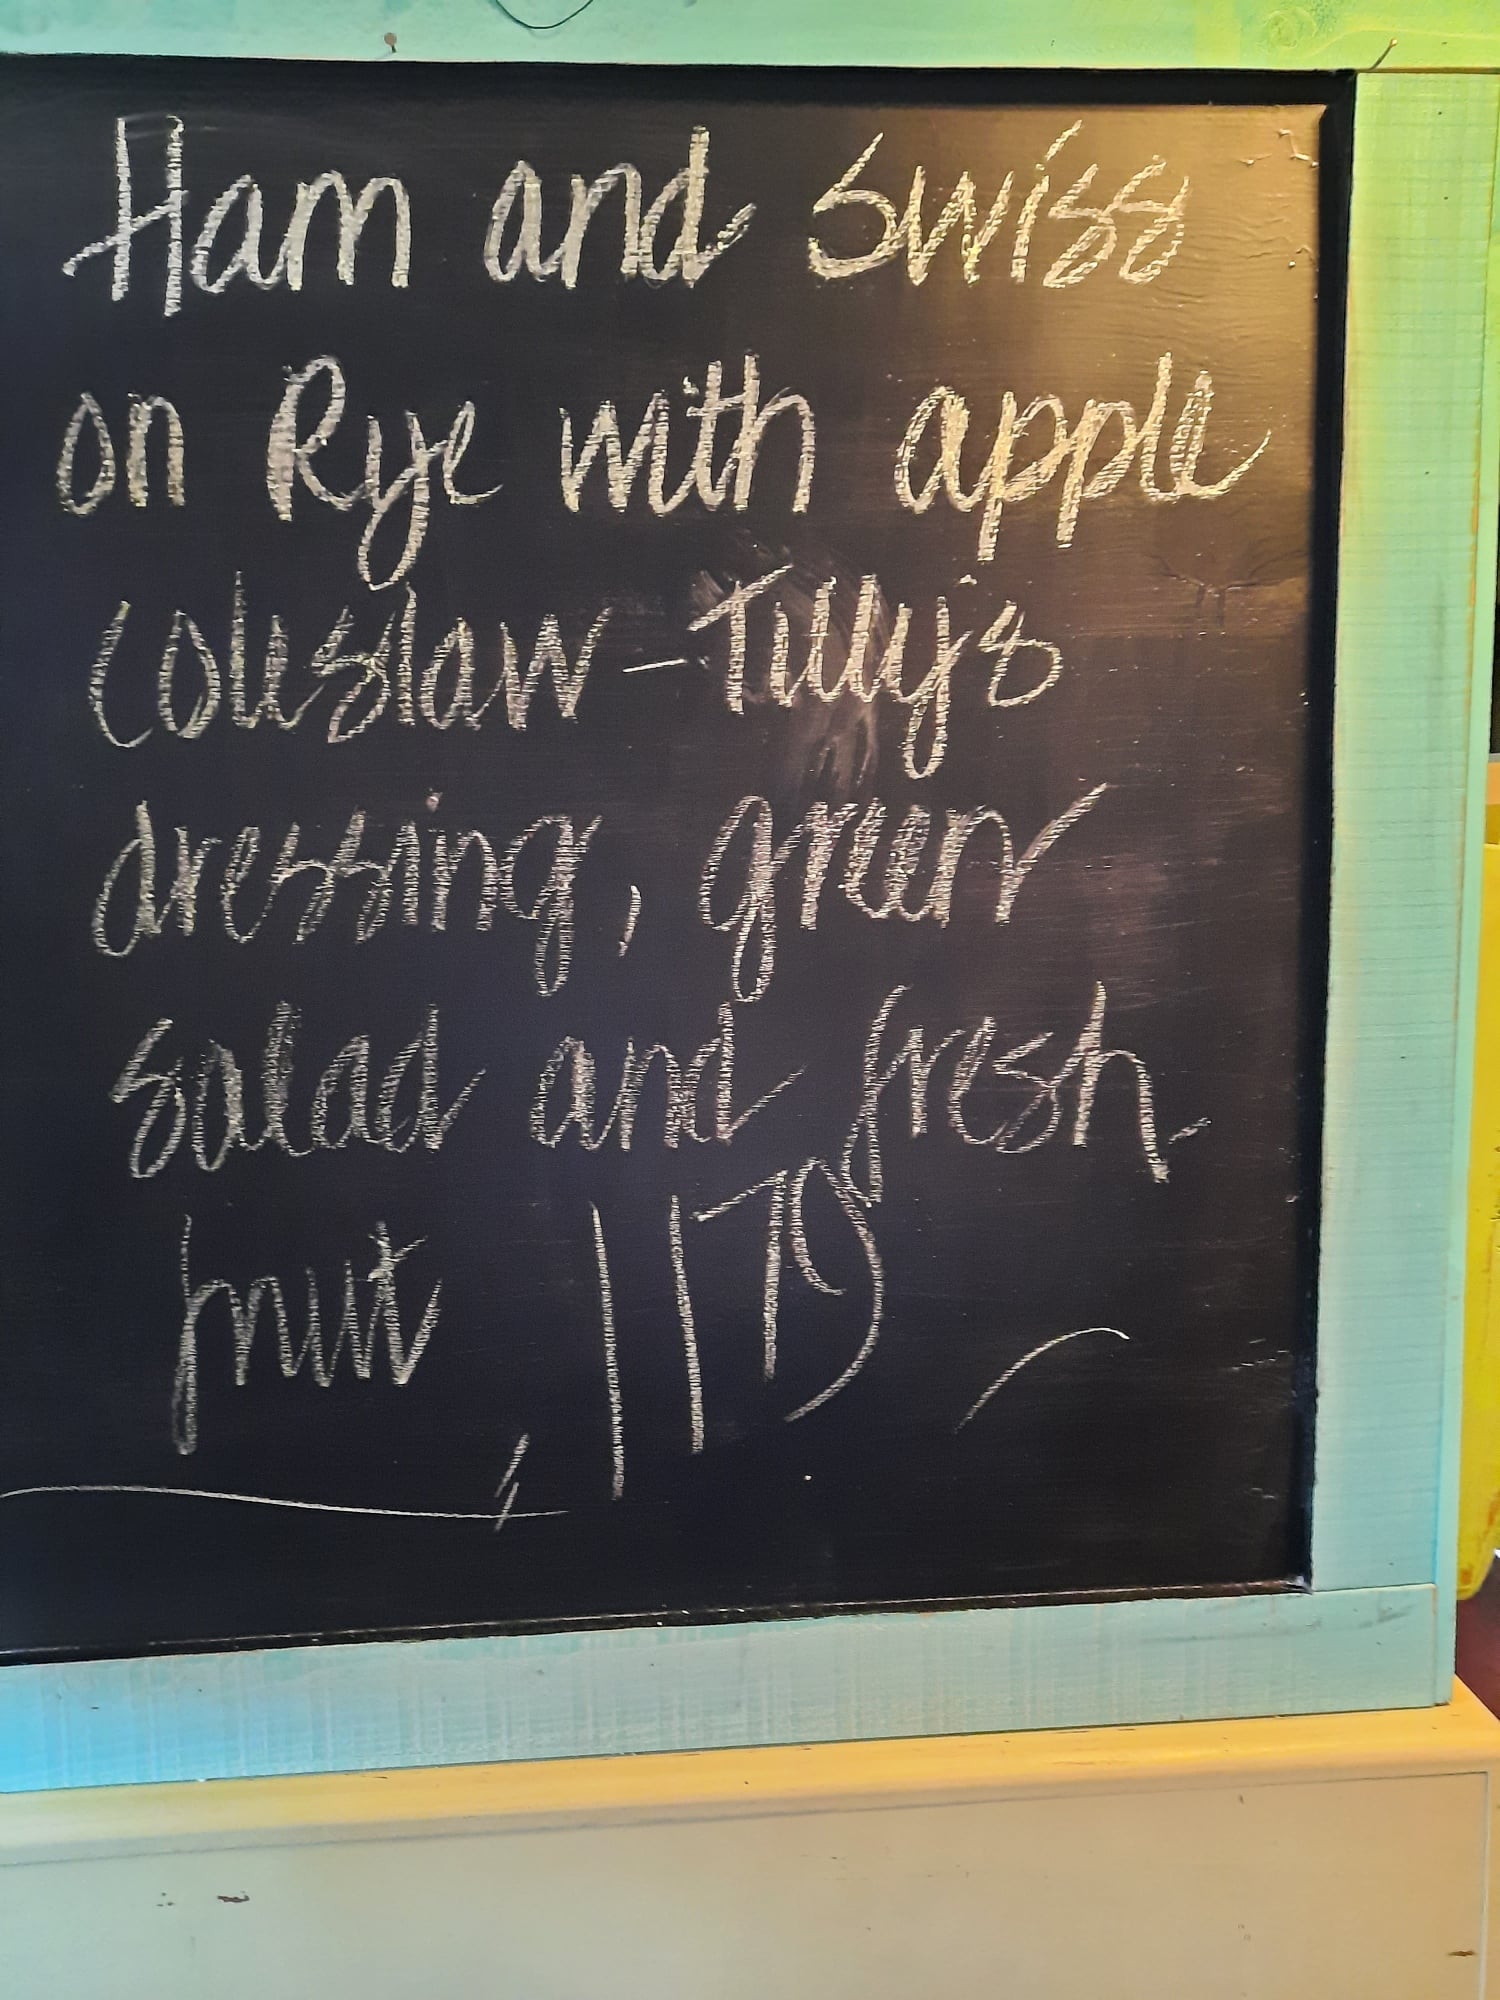 Ham and Swiss
on Rye with apple
coleslaw - Tilly's
dressing, green
salad and fresh
fruit, 1175